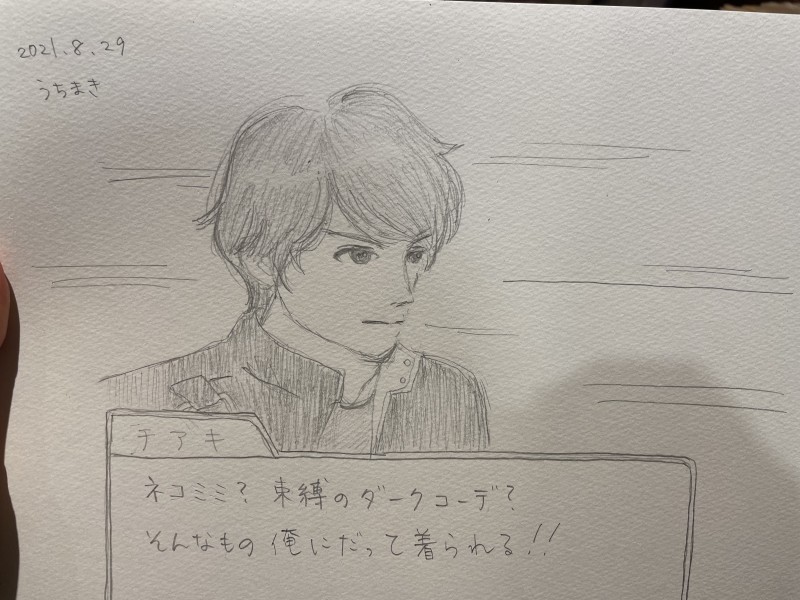 2021.8.29
うちまき
チアキ
ネコミミ？束縛のダークコーデ？
そんなもの俺にだって着られる!!